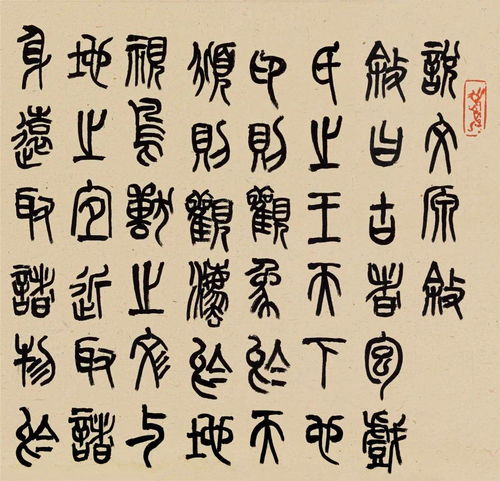 說文原敘
敘曰古者宓戲
氏之王天下也
卬則觀象於天
頫則觀灋於地
視鳥獸之文与
地之宜近取諸
身遠取諸物於